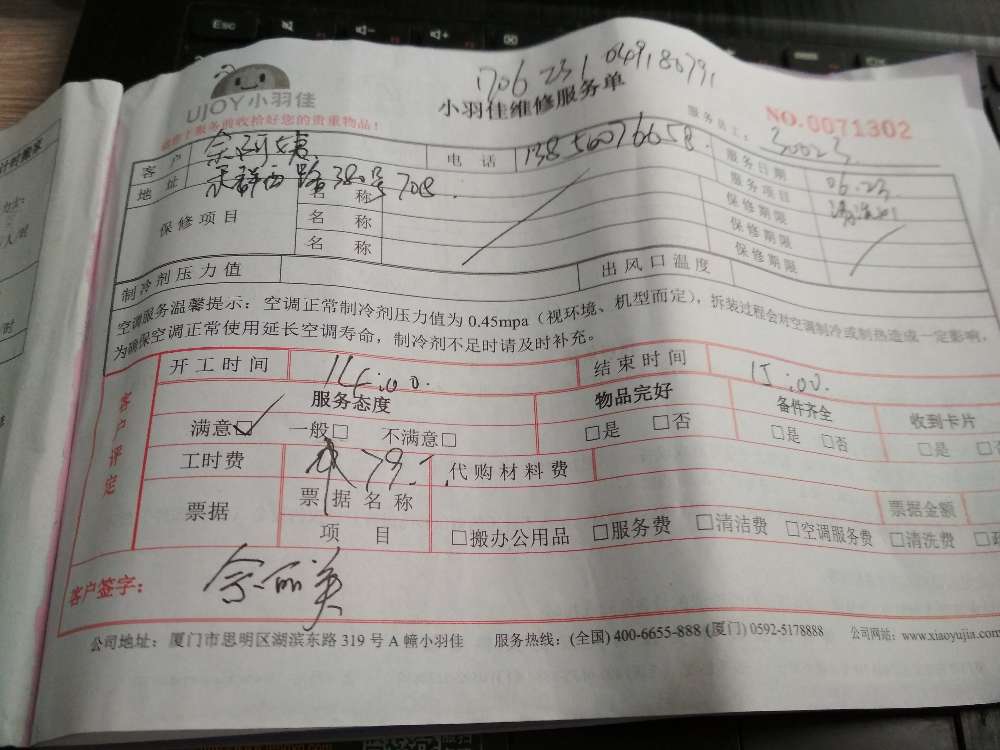 Esc
1706 231 049180791
UJOY小羽佳
小羽佳维修服务单
NO.0071302
服务员工: 30023
客户
电话 13856076658.
服务日期 06.23
地址 380号708
服务项目
保修项目
名称
保修期限
名称
保修期限
名称
保修期限
制冷剂压力值
出风口温度
空调服务温馨提示:空调正常制冷剂压力值为0.45mpa(视环境、机型而定),拆装过程会对空调制冷或制热造成一定影响,
为确保空调正常使用延长空调寿命,制冷剂不足时请及时补充。
客户评定
开工时间 14:00.
结束时间 15:00.
服务态度
物品完好
备件齐全
收到卡片
满意☑ 一般□ 不满意□
□是 □否
□是 □否
□是
工时费 79.
代购材料费
票据
票据名称
票据金额
项目
□搬办公用品 □服务费 □清洁费 □空调服务费 □清洗费
客户签字:
公司地址:厦门市思明区湖滨东路319号A幢小羽佳 服务热线:(全国)400-6655-888(厦门)0592-5178888 公司网站:www.xiaoyujia.com